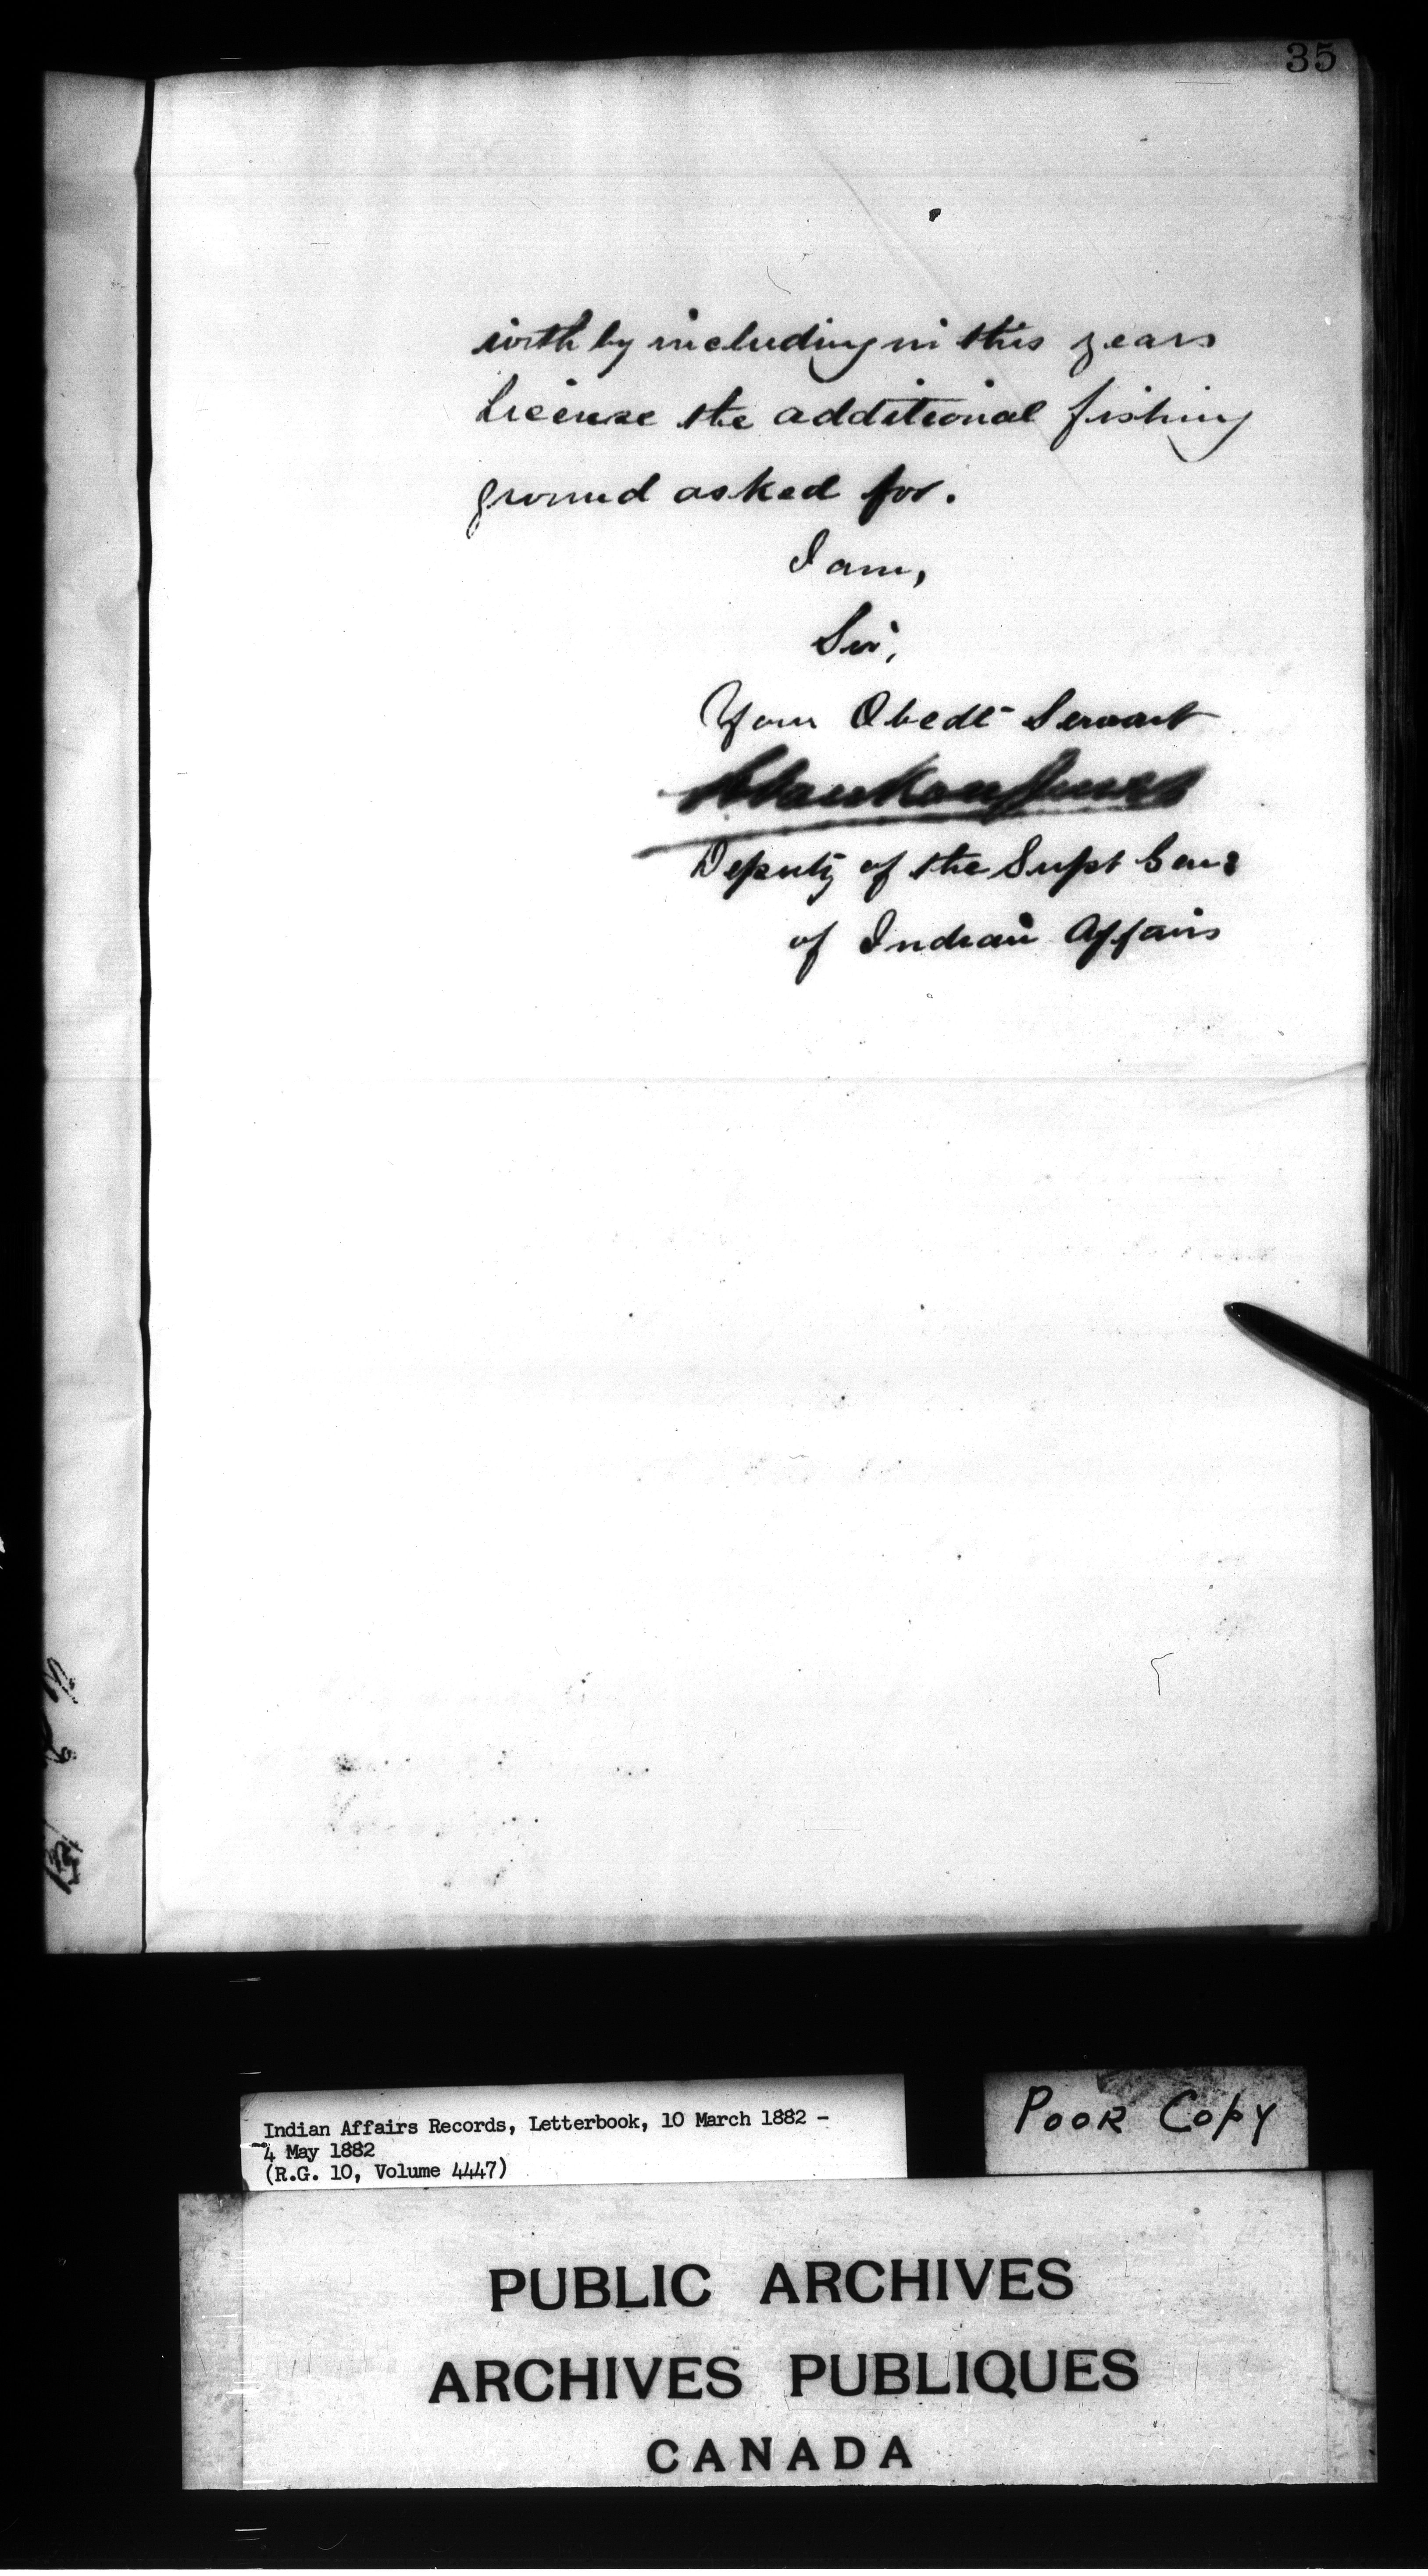 35
with by including in this years
license the additional fishing
ground asked for.
I am,
Sir,
Your Obedt Servant
L VanKoughnet
Deputy of the Supt Gen:
of Indian Affairs
Indian Affairs Records, Letterbook, 10 March 1882 -
4 May 1882
(R.G. 10, Volume 4447)
POOR COPY
PUBLIC ARCHIVES
ARCHIVES PUBLIQUES
CANADA